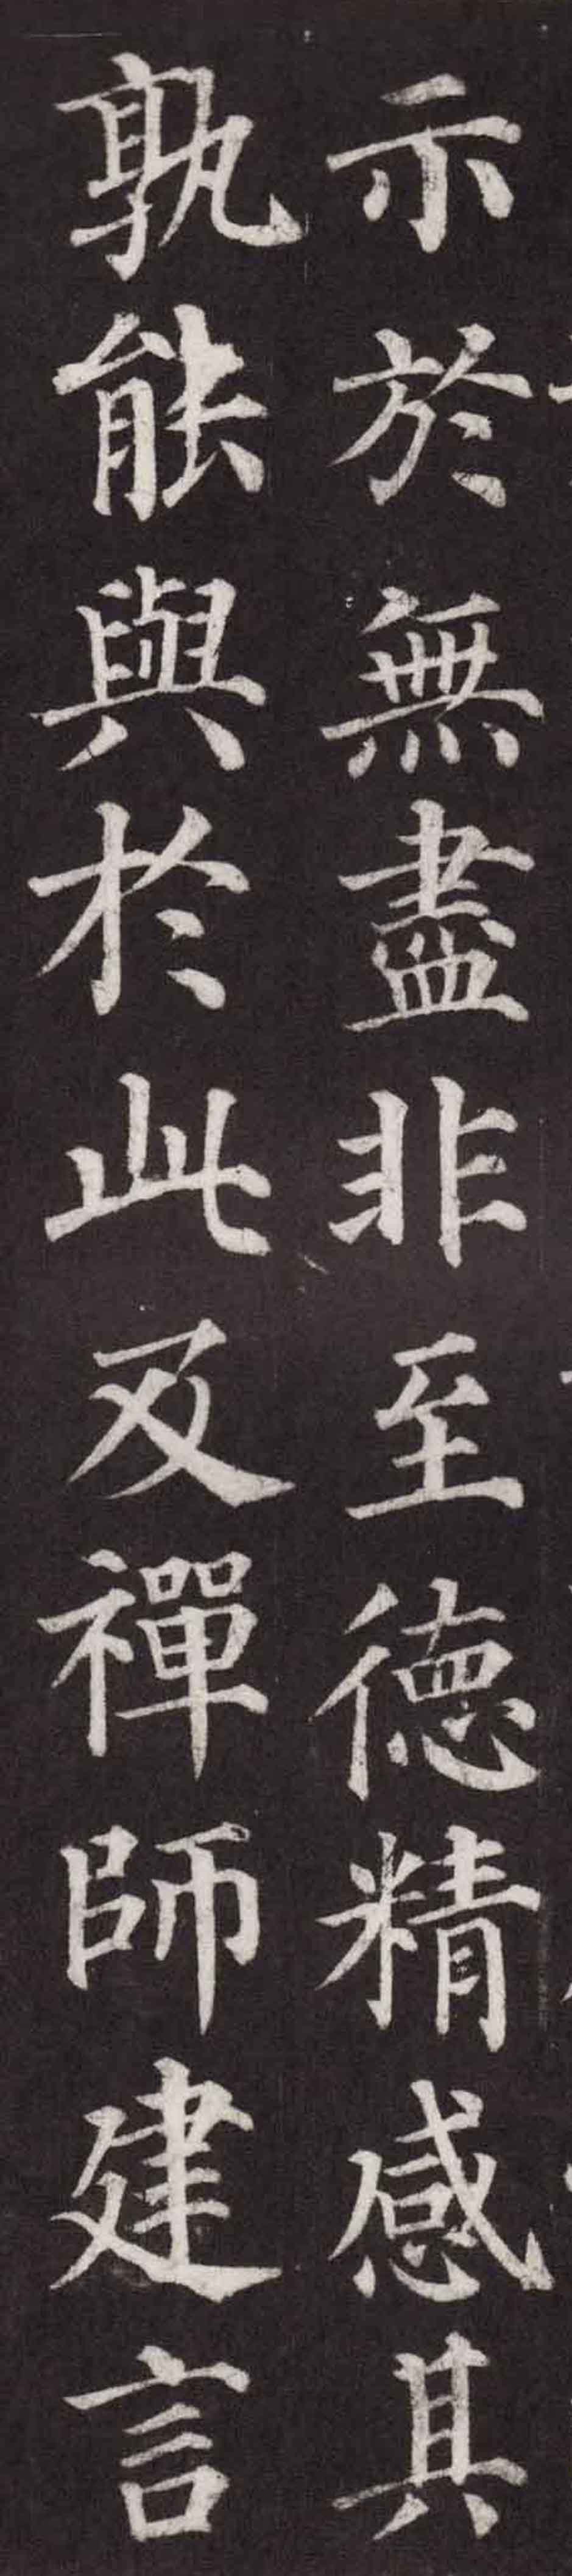 示於無盡非至德精感其
孰能與於此及禪師建言